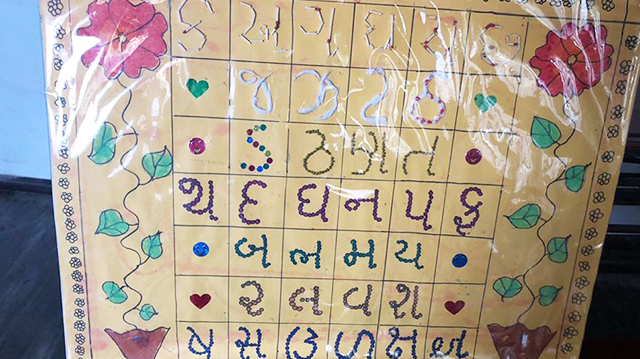 ક ખ ગ ઘ ચ છ
જ ઝ ટ ઠ
ડ ઢ ણ ત
થ દ ધ ન પ ફ
બ ભ મ ય
ર લ વ શ
ષ સ હ ળ ક્ષ જ્ઞ